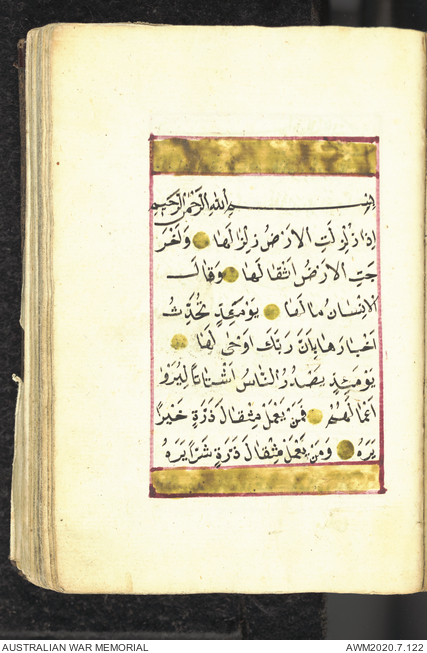 بِسْمِ اللهِ الرَّحْمٰنِ الرَّحِيمِ
اِذَا زُلْزِلَتِ الْاَرْضُ زِلْزَالَهَا وَاَخْرَ
جَتِ الْاَرْضُ اَثْقَالَهَا وَقَالَ
الْاِنْسَانُ مَالَهَا يَوْمَئِذٍ تُحَدِّثُ
اَخْبَارَهَا بِاَنَّ رَبَّكَ اَوْحٰى لَهَا
يَوْمَئِذٍ يَصْدُرُ النَّاسُ اَشْتَاتًا لِيُرَوْا
اَعْمَالَهُمْ فَمَنْ يَعْمَلْ مِثْقَالَ ذَرَّةٍ خَيْرًا
يَرَهُ وَمَنْ يَعْمَلْ مِثْقَالَ ذَرَّةٍ شَرًّا يَرَهُ
AUSTRALIAN WAR MEMORIAL
AWM2020.7.122